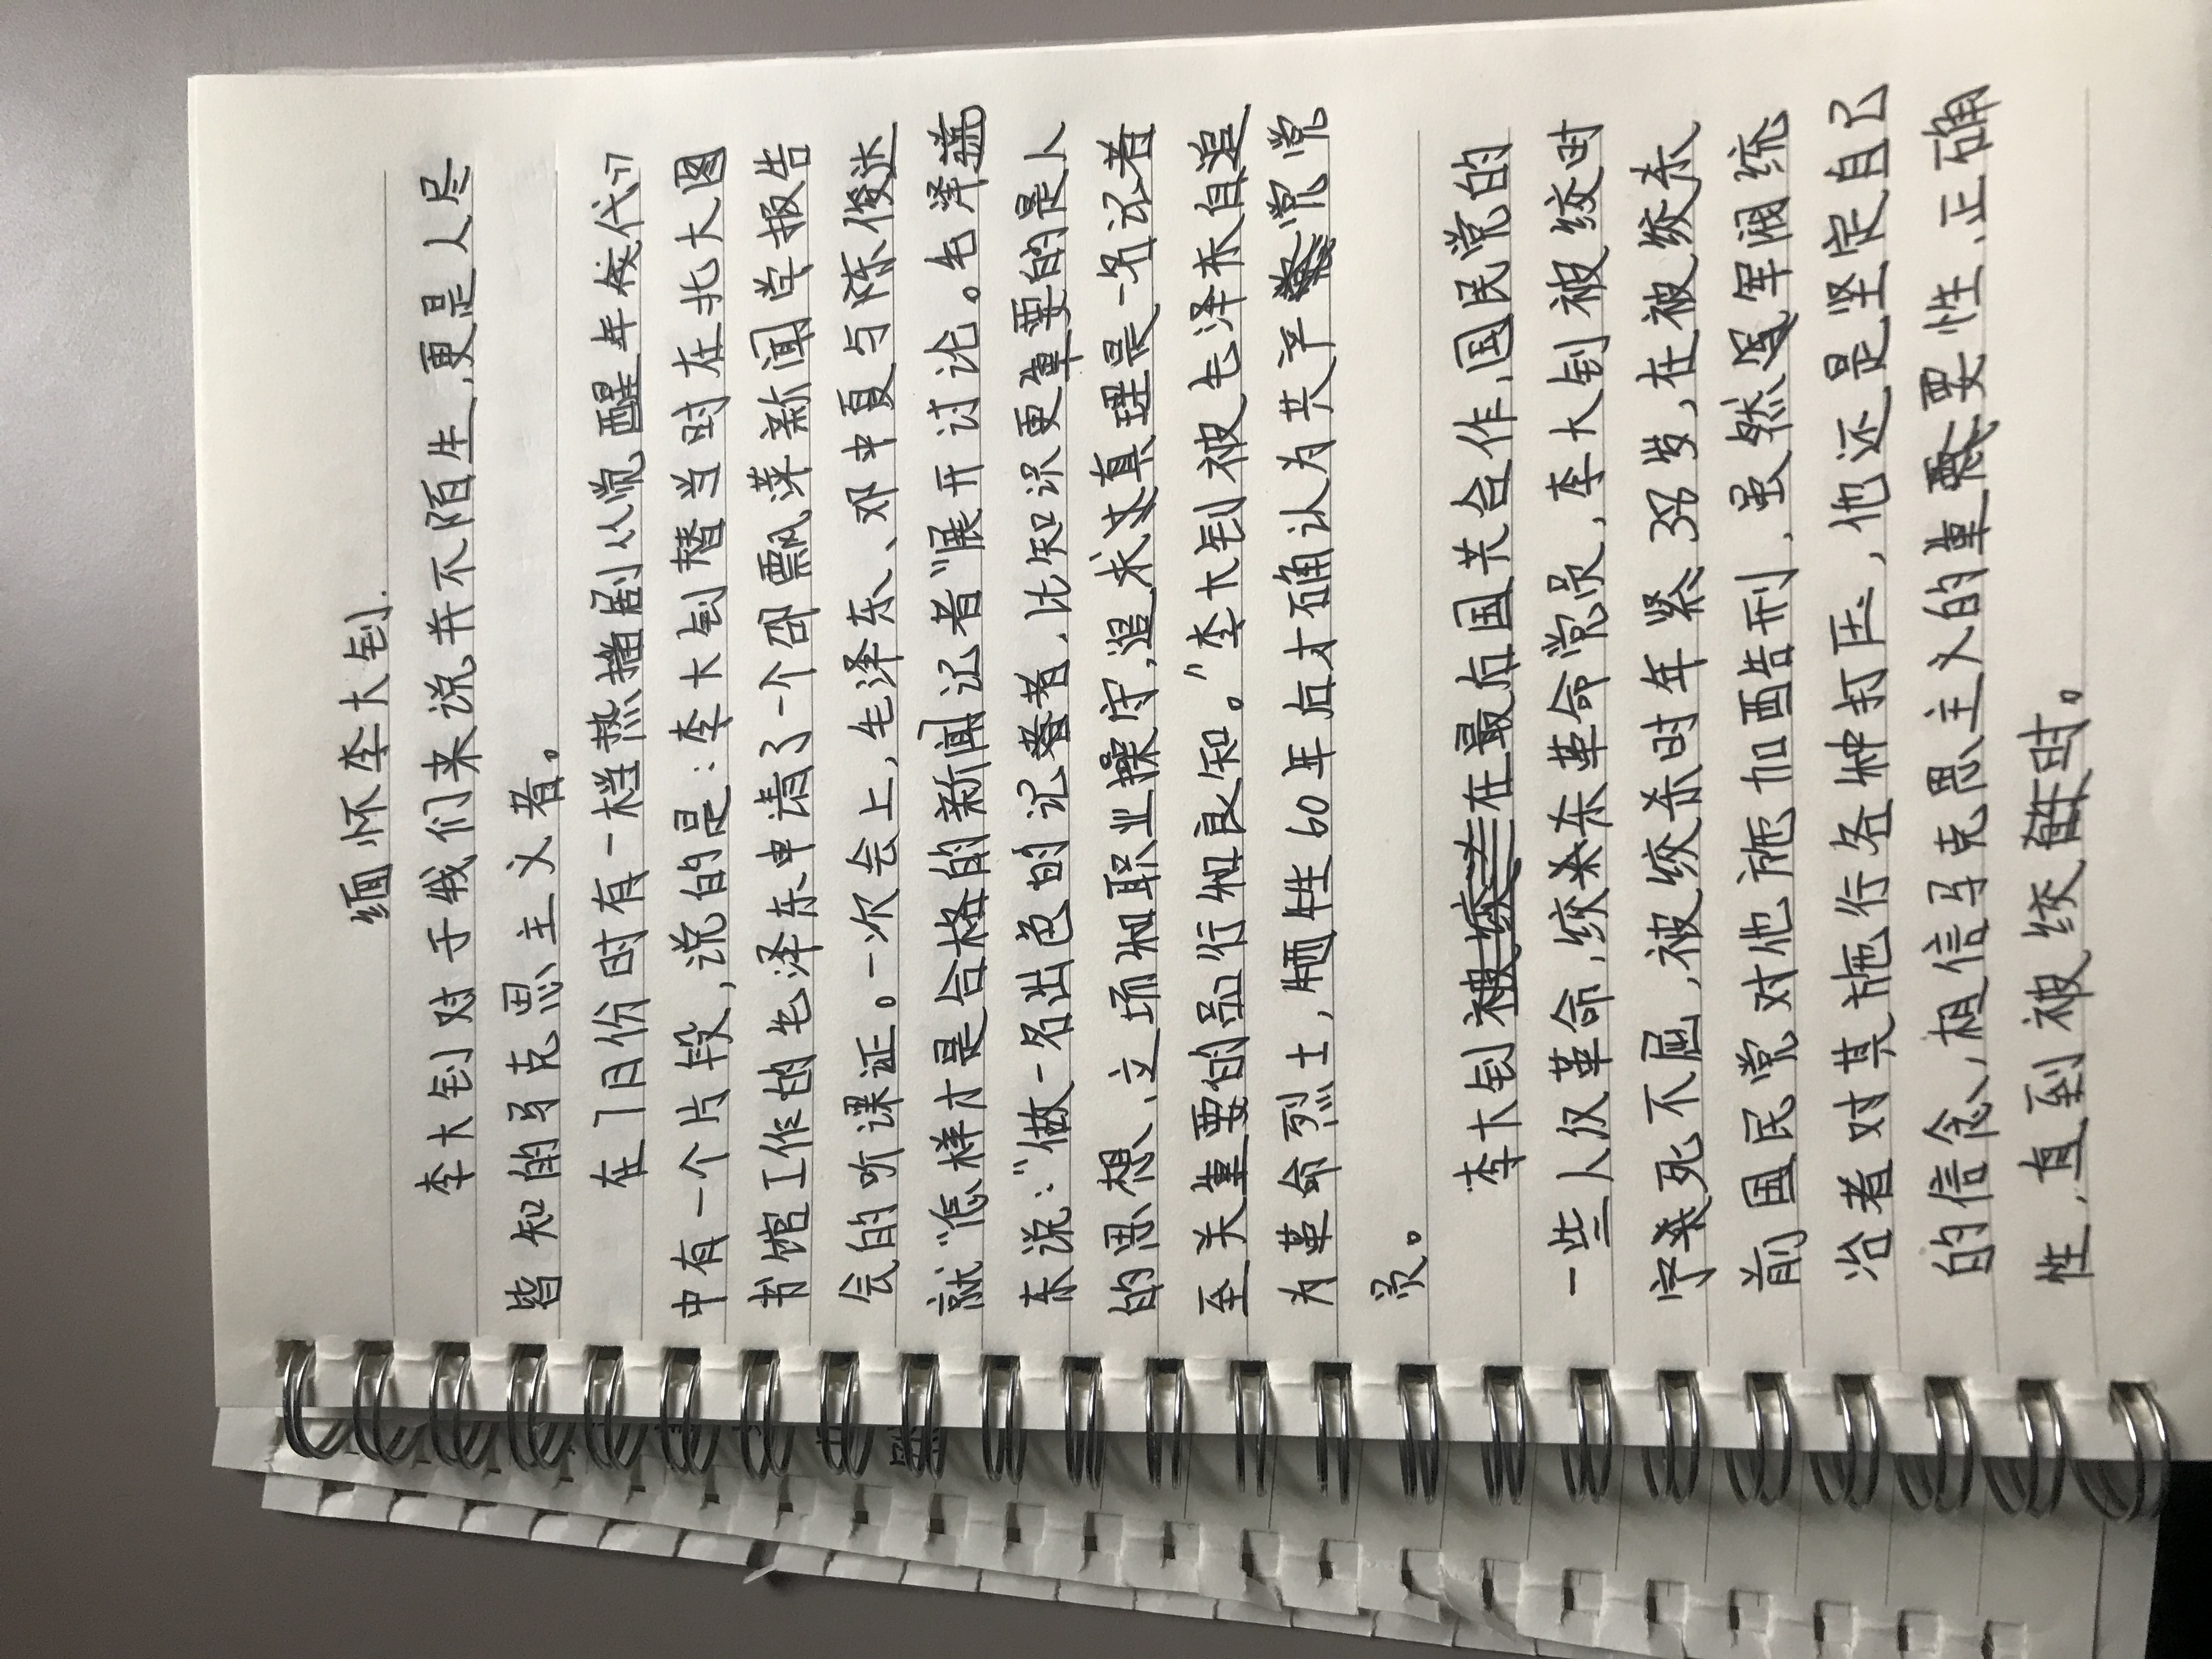 缅怀李大钊.
李大钊对于我们来说,并不陌生,更是人尽
皆知的马克思主义者。
在7月份时有一档热播剧《觉醒年代》
中有一个片段,说的是:李大钊替当时在北大图
书馆工作的毛泽东申请了一个邵飘萍新闻学报告
会的听课证。一次会上,毛泽东、邓中夏与陈俊达
就“怎样才是合格的新闻记者”展开讨论。毛泽
东说:“做一名出色的记者,比知识更重要的是人
的思想、立场和职业操守,追求真理是一名记者
至关重要的品行和良知。”李大钊被毛泽东自追
为革命烈士,牺牲60年后才确认为共产党
员。
李大钊在最后国共合作,国民党的
一些人仅革命,绞杀革命党员,李大钊被绞时
宁死不屈,被绞杀时年紧38岁,在被绞杀
前国民党对他施加酷刑,虽然军阀统
治者对其施行各种打压,他还是坚定自己
的信念,相信马克思主义的重要性,正确
性,直到被绞时。